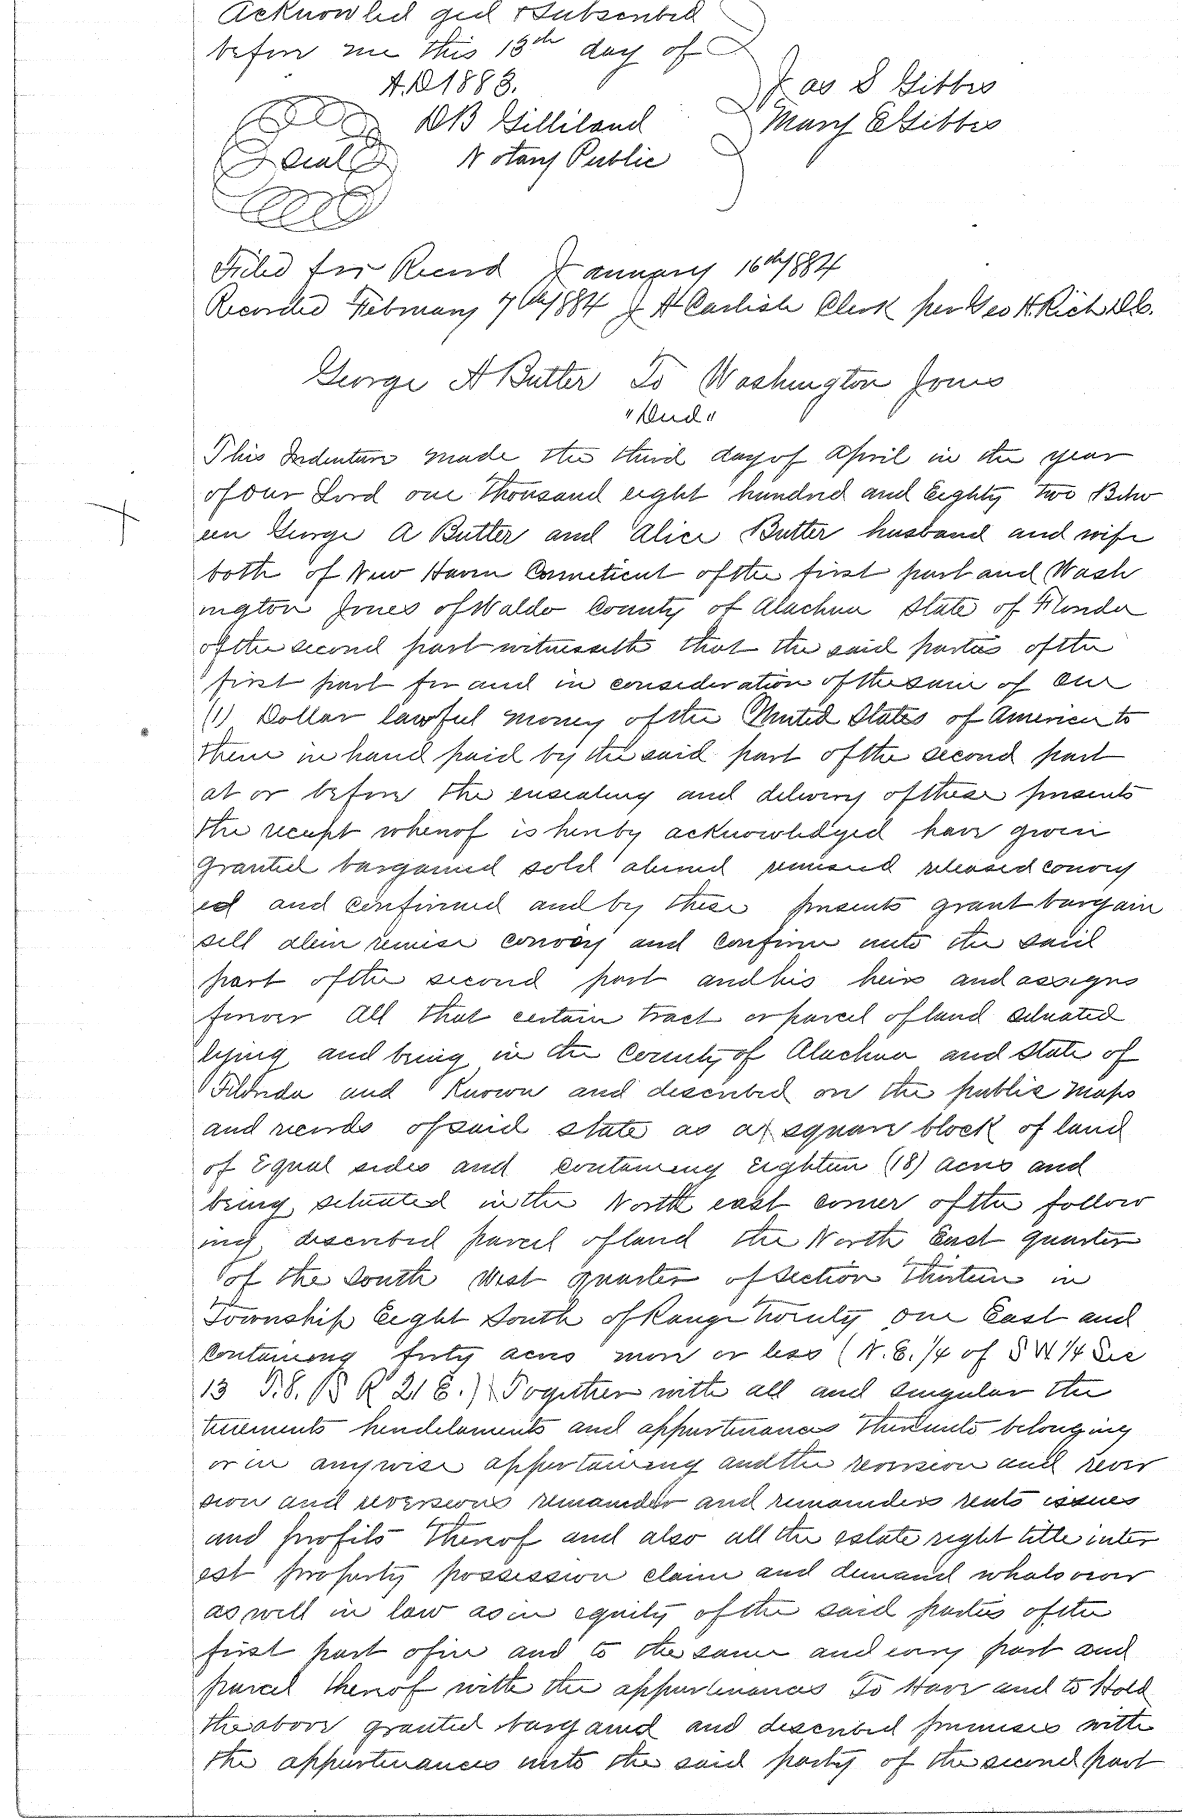 Acknowledged & Subscribed
before me this 15th day of
A.D 1883.
Jas S Gibbes
DB Gilliland
Mary E Gibbes
Seal
Notary Public
Filed for Record January 16th/1884
Recorded February 7th/1884 J A Carlisle Clerk per Geo H. Rich D.C.
George A Butler To Washington Jones
"Deed"
This Indenture made the third day of April in the year
of our Lord one thousand eight hundred and Eighty two Betw
een George A Butler and Alice Butler husband and wife
both of New Haven Conneticut of the first part and Wash
ington Jones of Waldo County of Alachua State of Florida
of the second part witnesseth that the said parties of the
first part for and in consideration of the sum of one
(1) Dollar lawful money of the United States of America to
them in hand paid by the said part of the second part
at or before the ensealing and delivery of these presents
the receipt whereof is hereby acknowledged have given
granted bargained sold aliened remised released convey
ed and confirmed and by these presents grant bargain
sell alein remise convey and confirm unto the said
part of the second part and his heirs and assigns
forever All that certain tract or parcel of land situated
lying and being in the County of Alachua and State of
Florida and Known and described on the public maps
and records of said state as a square block of land
of Equal sides and containing Eighteen (18) acres and
being situated in the North east corner of the follow
ing described parcel of land the North East quarter
of the South West quarter of section thirteen in
Township Eight South of Range Twenty one East and
containing forty acres more or less (N.E. 1/4 of S W 1/4 Sec
13 T.8. S R 21 E.) Together with all and singular the
tenements hendelaments and appurtenances thereunto belonging
or in anywise appertaining and the reversion and rever
sion and reversions remainder and remainders rents issues
and profits thereof and also all the estate right title inter
est property possession claim and demand whatsoever
as well in law as in equity of the said parties of the
first part of in and to the same and every part and
parcel thereof with the appurtenances To Have and to Hold
the above granted bargained and described premises with
the appurtenances unto the said party of the second part